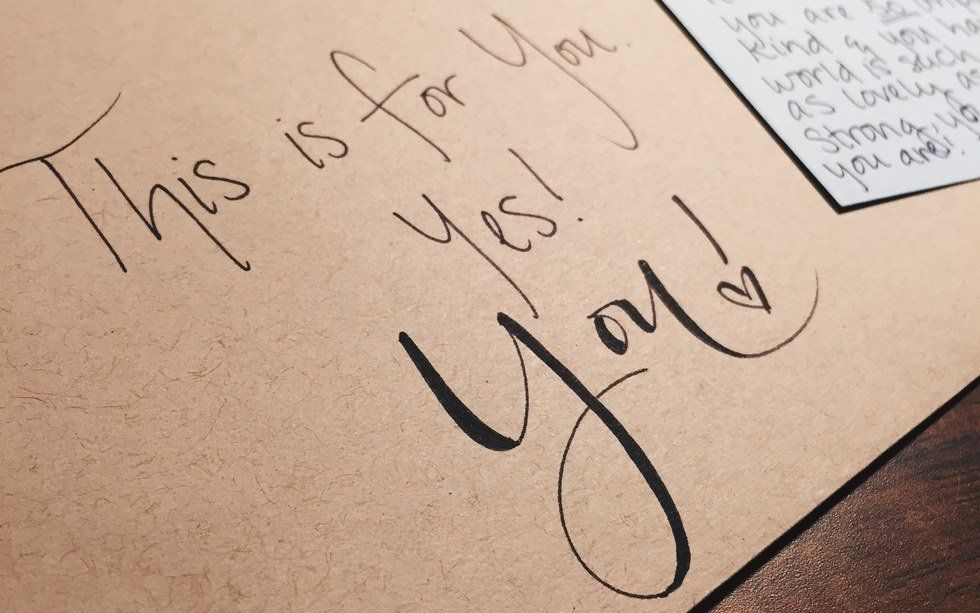 This is for You.
Yes!
You!
you are so
kind
you ha
world is such
as lovely a
Strong
you are! yo